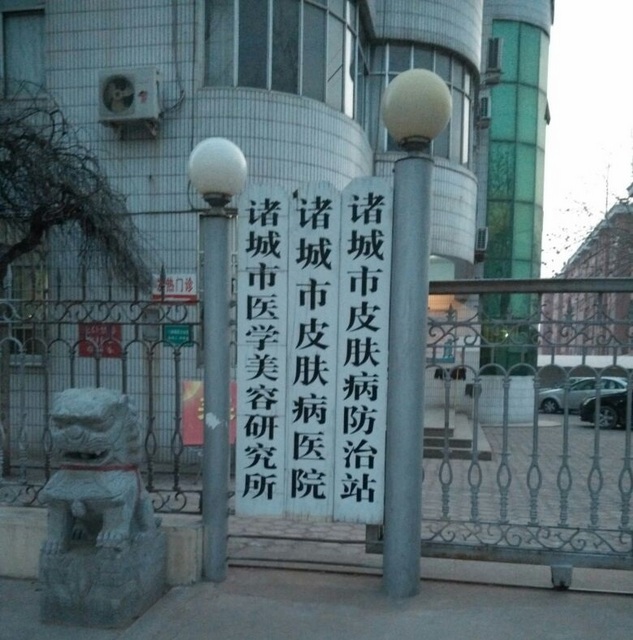 诸城市皮肤病防治站
诸城市皮肤病医院
诸城市医学美容研究所
热门诊